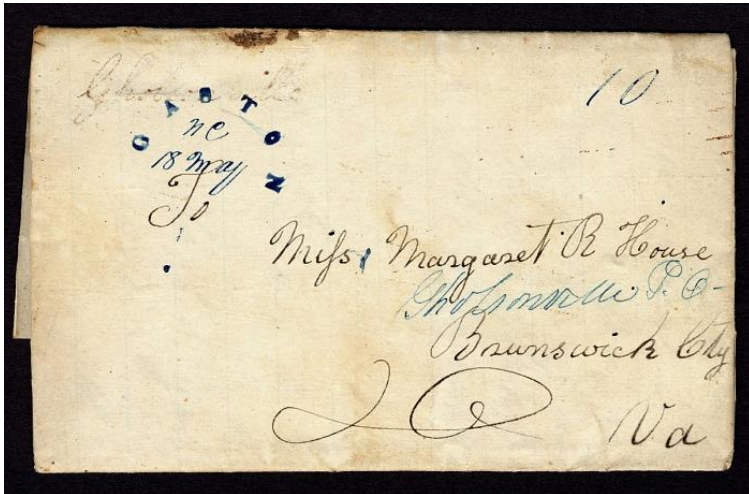 Gholsonville
GASTON
NC
18 May
10
To
Miss Margaret R House
Gholsonville P. O-
Brunswick Cty
Va